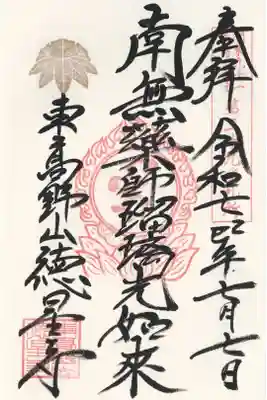 奉拝 令和七巳年七月七日
南無藥師瑠璃光如來
東高野山徳星寺